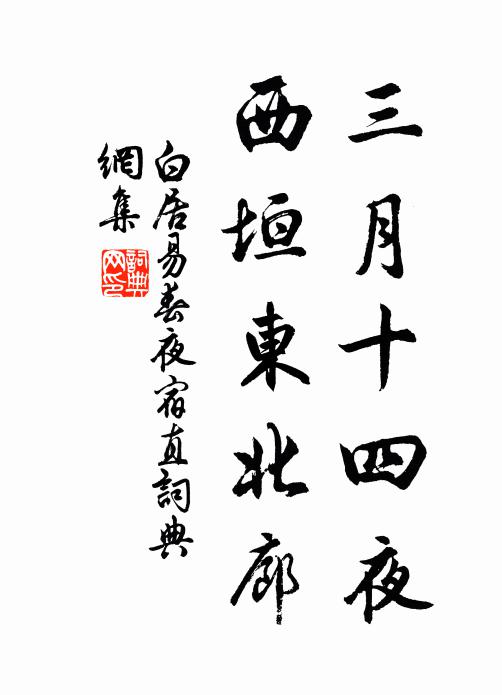 三月十四夜
西垣東北廊
白居易春夜宿直詞典
網集
詞典
网印